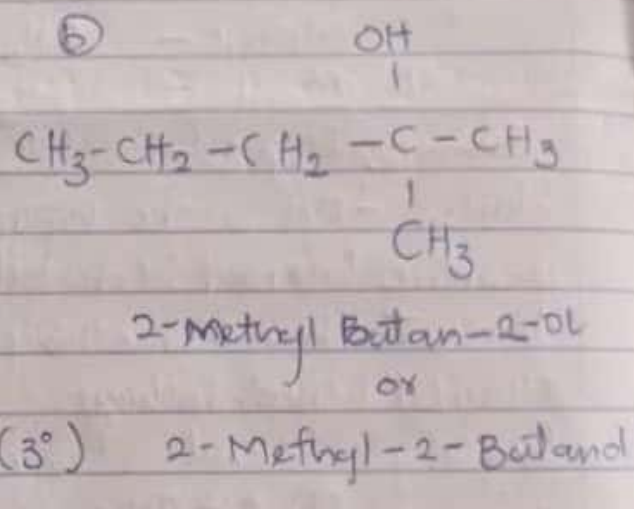 5
OH
CH₃-CH₂-CH₂-C-CH₃
CH₃
2-Methyl Butan-2-OL
or
(3°) 2-Methyl-2-Butanol